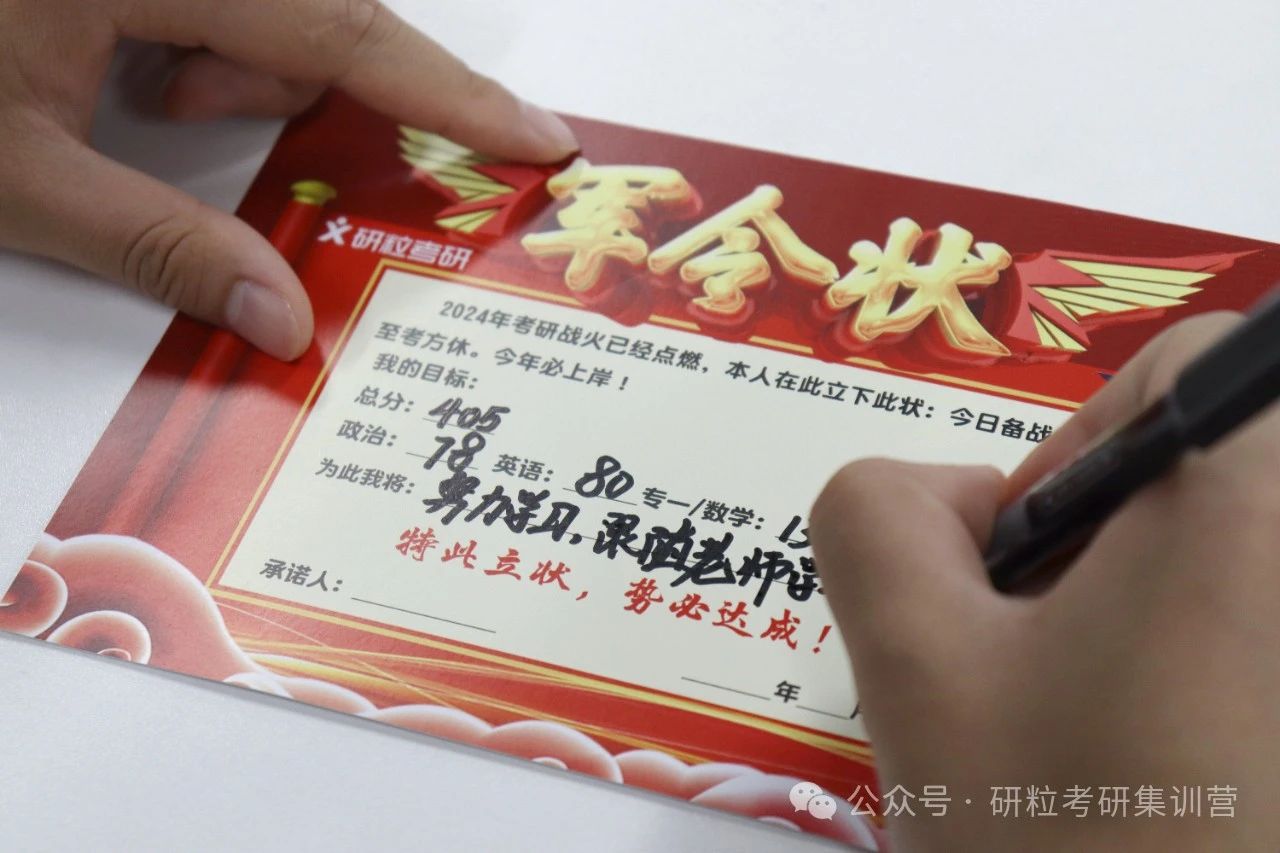 军令状
研粒考研
2024年考研战火已经点燃，本人在此立下此状：今日备战
至考方休。今年必上岸！
我的目标：
总分：405
政治：78 英语：80 专一/数学：13
为此我将：努力学习，跟随老师
特此立状，势必达成！
承诺人：
年
公众号·研粒考研集训营